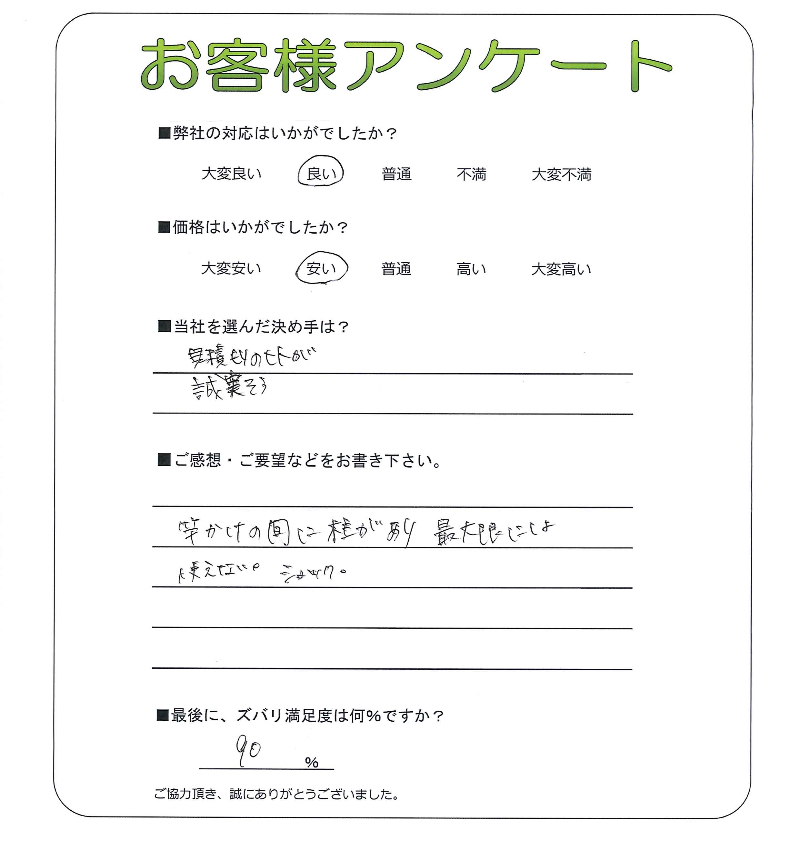 お客様アンケート
■弊社の対応はいかがでしたか？
大変良い 良い 普通 不満 大変不満
■価格はいかがでしたか？
大変安い 安い 普通 高い 大変高い
■当社を選んだ決め手は？
見積もりの
誠実そう
■ご感想・ご要望などをお書き下さい。
竿かけの間に柱があり 最大限には
使えない。 ショック。
■最後に、ズバリ満足度は何%ですか？
90 %
ご協力頂き、誠にありがとうございました。